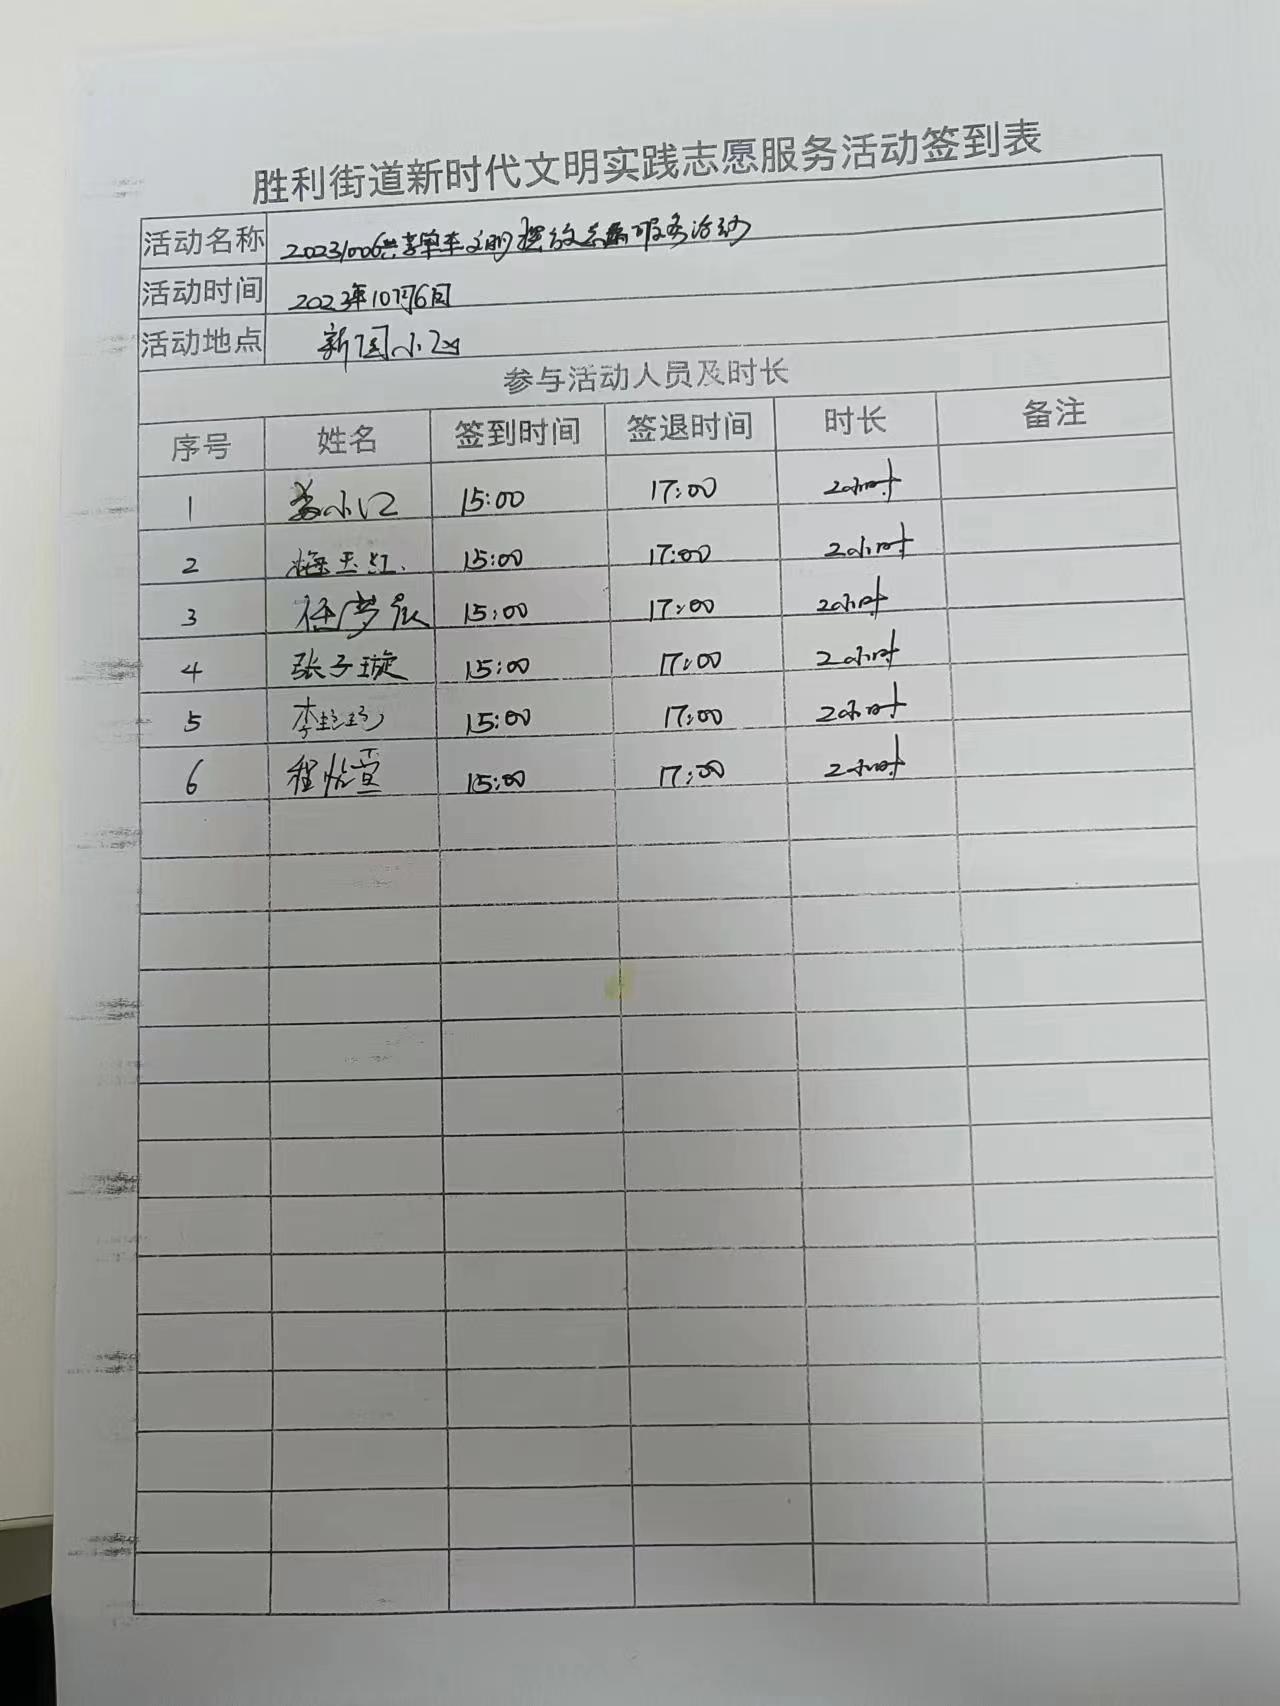 胜利街道新时代文明实践志愿服务活动签到表
活动名称 20231006共享单车文明摆放志愿服务活动
活动时间 2023年10月6日
活动地点 新园小区
参与活动人员及时长
序号 姓名 签到时间 签退时间 时长 备注
1 15:00 17:00 2小时
2 梅玉红 15:00 17:00 2小时
3 任梦辰 15:00 17:00 2小时
4 张子璇 15:00 17:00 2小时
5 李 15:00 17:00 2小时
6 程怡萱 15:00 17:00 2小时